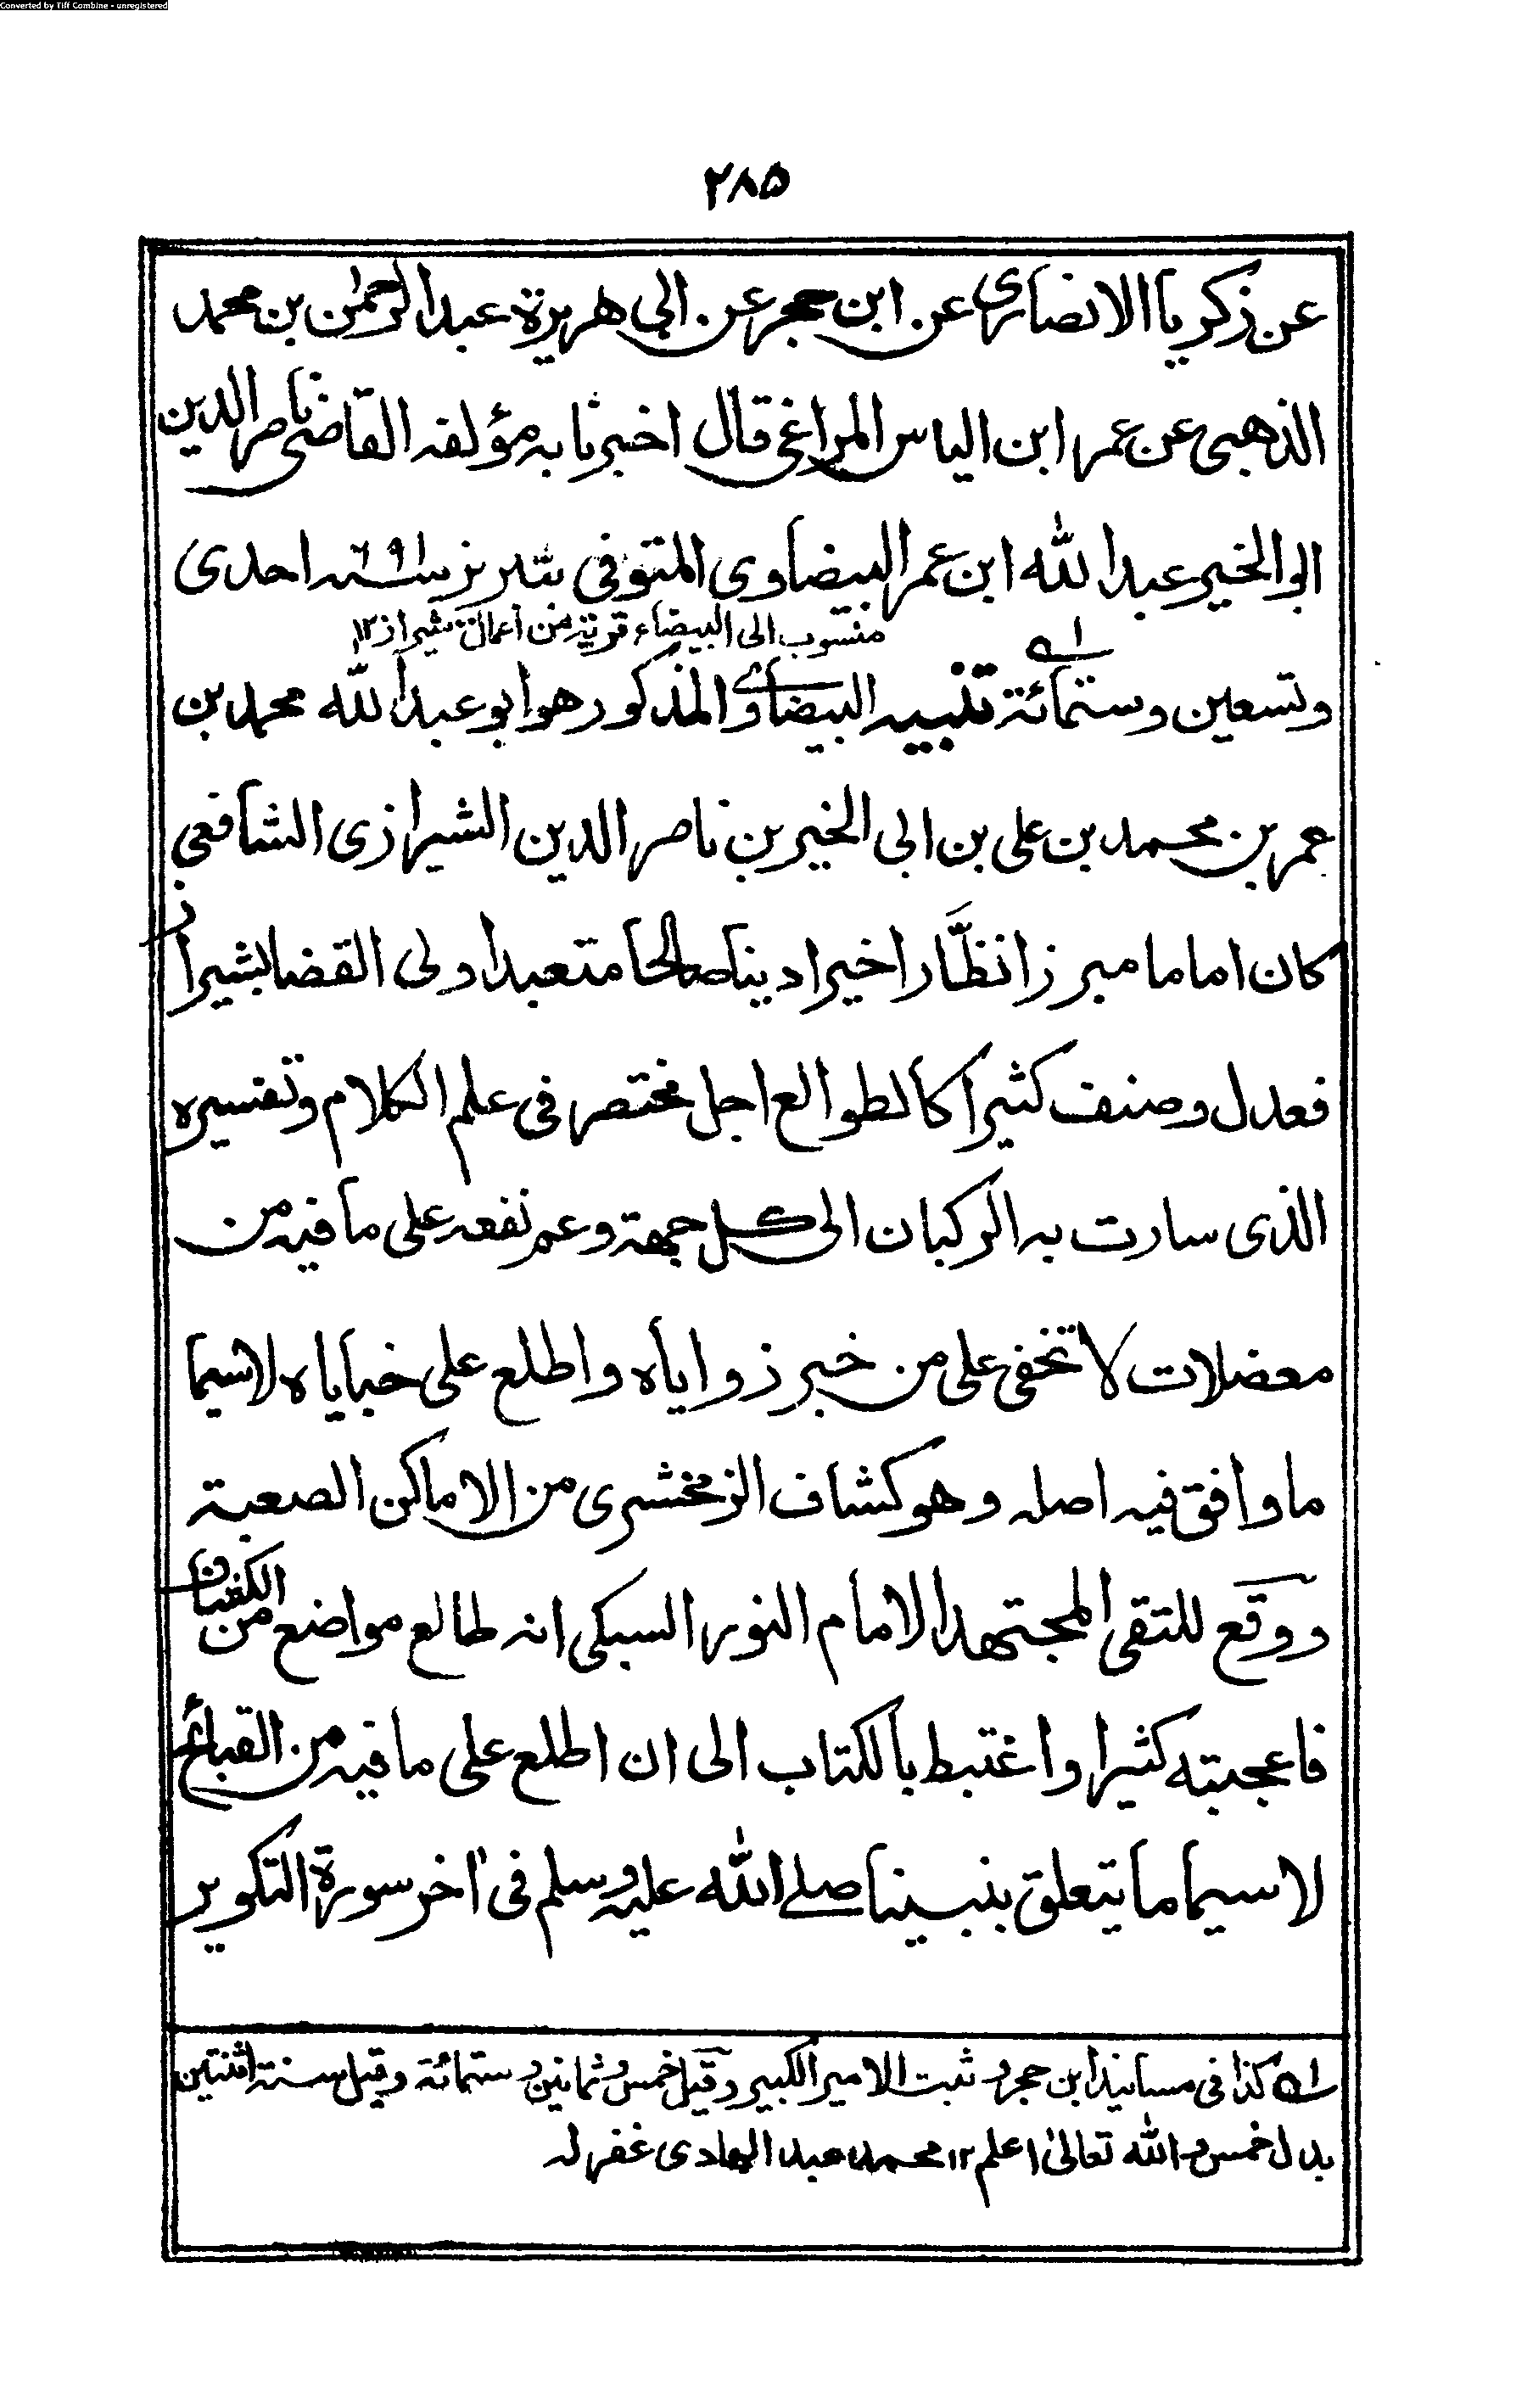 Converted by Tiff Combine - unregistered
٢٨٥
عن زكريا الانصاري عن ابن حجر عن ابي هريرة عبد الرحمٰن بن محمد
الذهبى عن عمر ابن الياس المراغي قال اخبرنا به مؤلفه القاضي ناصر الدين
ابو الخير عبد الله ابن عمر البيضاوى المتوفى بتبريز سنه ٦٩١ احدى
منسوب الى البيضاء قرية من أعمال شيراز ١٢
وتسعين وستمائة ١ه تنبيه البيضاوي المذكور هو ابو عبد الله محمد بن
عمر بن محمد بن على بن ابى الخير بن ناصر الدين الشيرازى الشافعي
كان اماما مبرزا نظَّارا خيرا دينا صالحا متعبدا ولى القضا بشيراز
فعدل وصنف كثيرا كالطوالع اجل مختصر فى علم الكلام وتفسيره
الذى سارت به الركبان الى كل جهة وعم نفعه على ما فيه من
معضلات لا تخفى على من خبر زواياه واطلع على خباياه لا سيما
ما وافق فيه اصله وهو كشاف الزمخشرى من الاماكن الصعبة
ووقع للتقى المجتهد الامام النور السبكى انه طالع مواضع من الكشاف
فاعجبته كثيرا واغتبط بالكتاب الى ان اطلع على ما فيه من القبائح
لا سيما ما يتعلق بنبينا صلے الله عليه وسلم فى اٰخر سورة التكوير
١ه كذا فى مسانيد ابن حجر و ثبت الامير الكبير وقيل خمس وثمانين وستمائة وقيل سنة اثنتين
بدل خمس والله تعالىٰ اعلم ١٢ محمد عبد الهادى غفر له